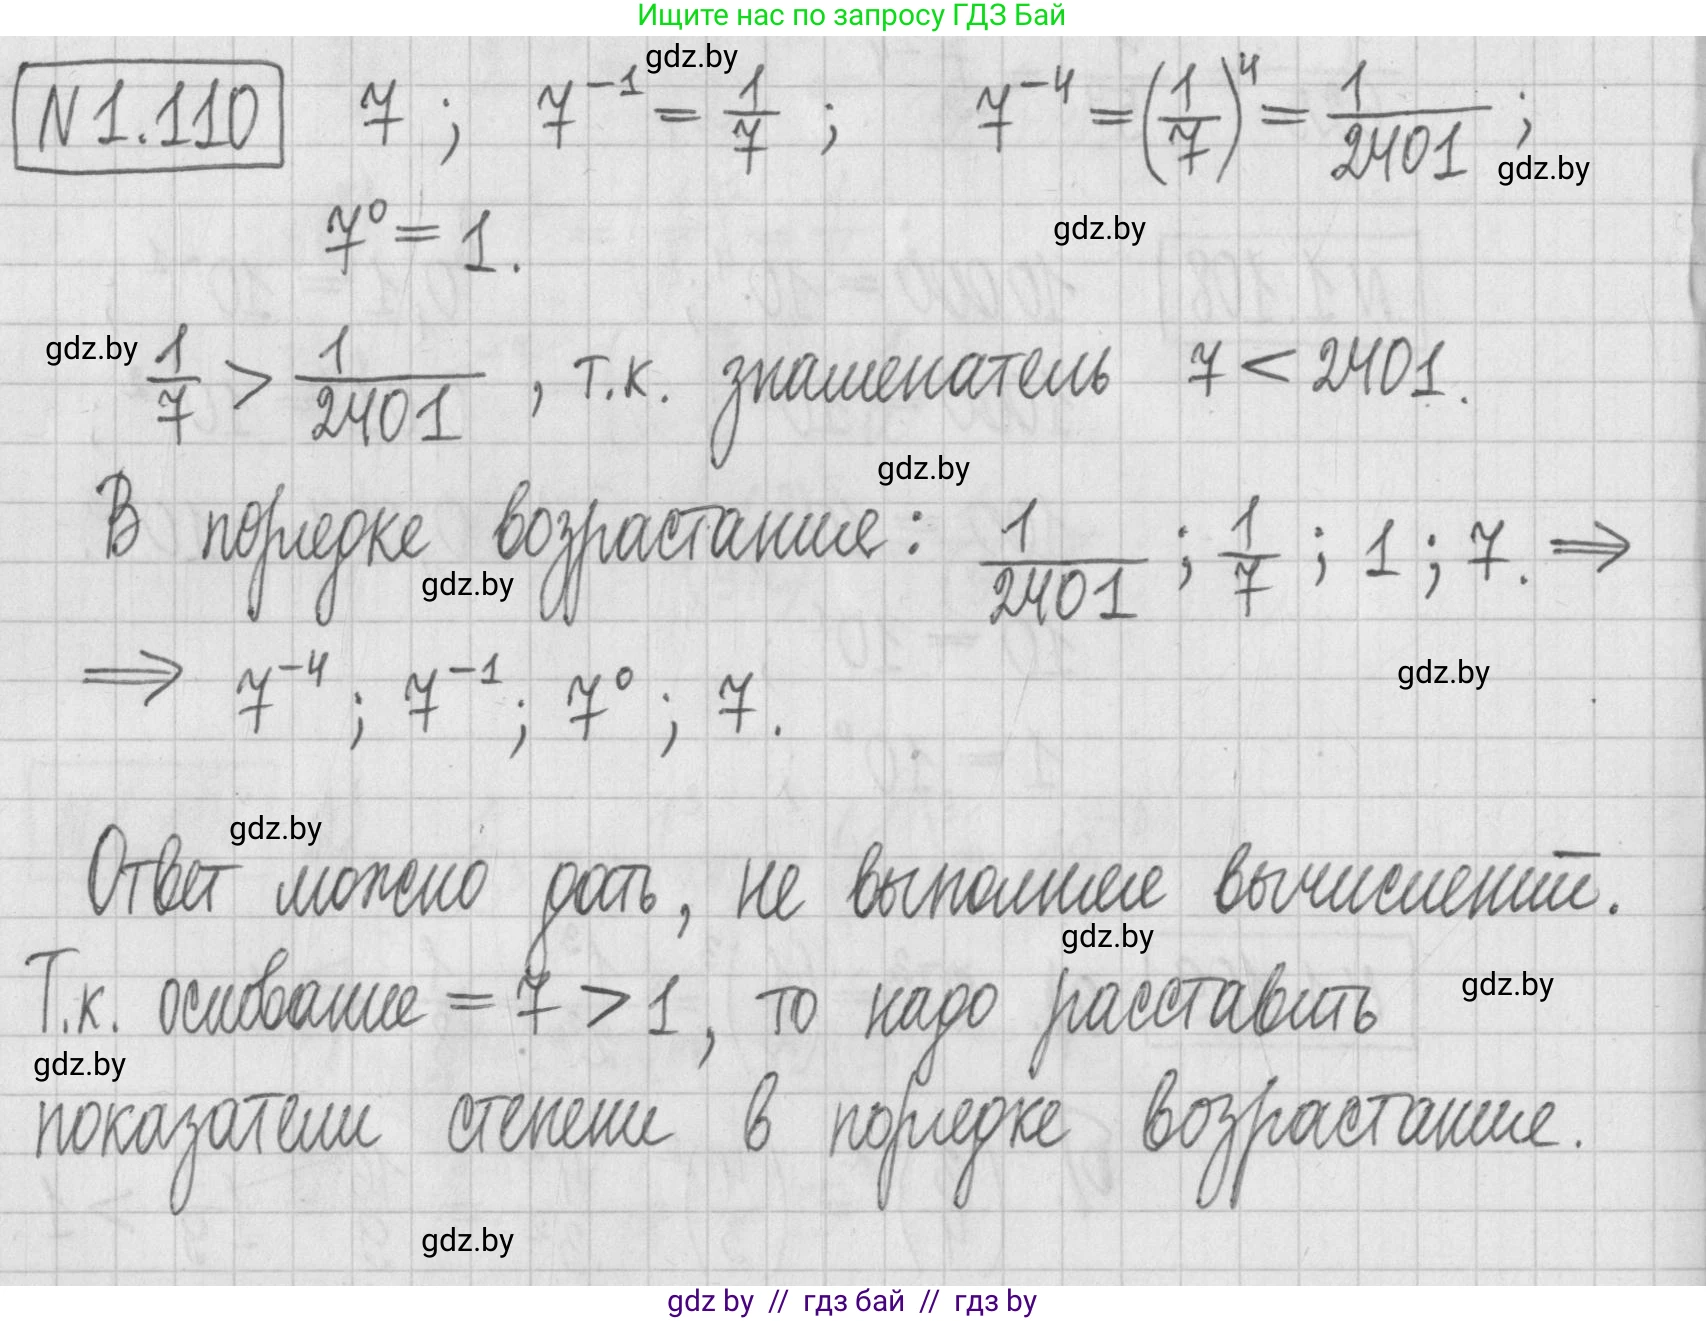 Ищите нас по запросу ГДЗ Бай
gdz.by
N 1.110 7 ; 7⁻¹ = 1/7 ; 7⁻⁴ = (1/7)⁴ = 1/2401 ;
gdz.by
7⁰ = 1.
gdz.by
gdz.by
1/7 > 1/2401 , т.к. знаменатель 7 < 2401.
gdz.by
В порядке возрастания: 1/2401 ; 1/7 ; 1 ; 7. ⇒
gdz.by
⇒ 7⁻⁴ ; 7⁻¹ ; 7⁰ ; 7.
gdz.by
gdz.by
Ответ можно дать, не выполняя вычислений.
gdz.by
Т.к. основание = 7 > 1, то надо расставить
gdz.by
gdz.by
показатели степени в порядке возрастания.
gdz.by
gdz by // гдз бай // гдз by